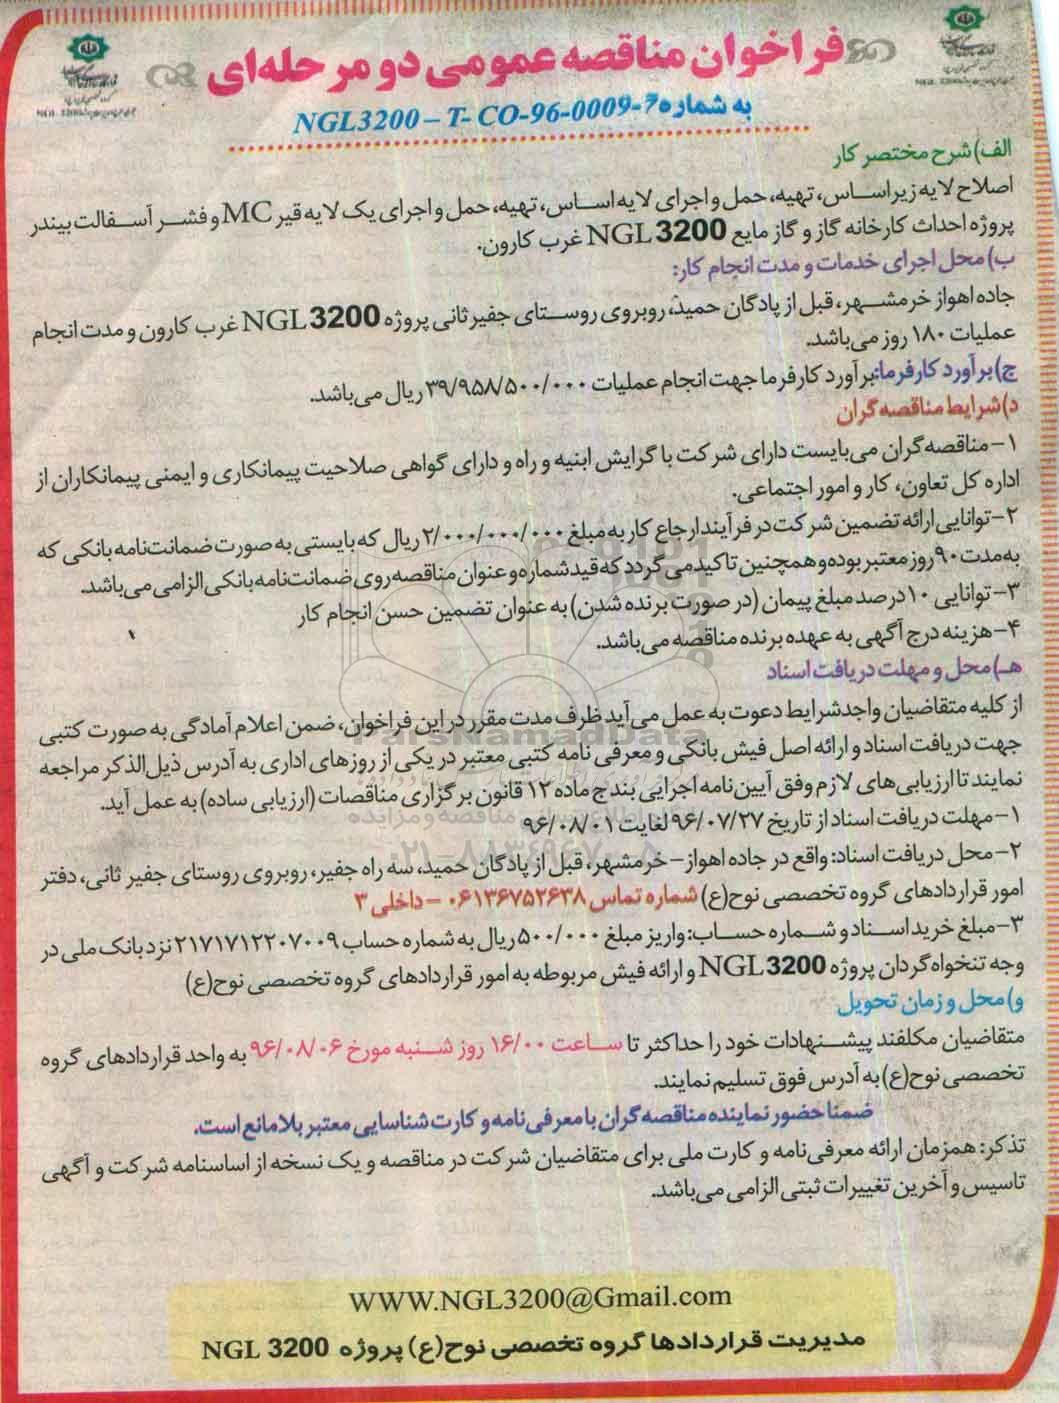 فراخوان مناقصه عمومی دو مرحله‌ای
به شماره NGL3200 – T- CO-96-0009-7
الف) شرح مختصر کار
اصلاح لایه زیراساس، تهیه، حمل و اجرای لایه اساس، تهیه، حمل و اجرای یک لایه قیر MC و فشر آسفالت بیندر
پروژه احداث کارخانه گاز و گاز مایع NGL 3200 غرب کارون.
ب) محل اجرای خدمات و مدت انجام کار:
جاده اهواز خرمشهر، قبل از پادگان حمید، روبروی روستای جفیر ثانی پروژه NGL 3200 غرب کارون و مدت انجام
عملیات ۱۸۰ روز می‌باشد.
ج) برآورد کارفرما: برآورد کارفرما جهت انجام عملیات ۳۹/۹۵۸/۵۰۰/۰۰۰ ریال می‌باشد.
د) شرایط مناقصه‌گران
۱- مناقصه‌گران می‌بایست دارای شرکت با گرایش ابنیه و راه و دارای گواهی صلاحیت پیمانکاری و ایمنی پیمانکاران از
اداره کل تعاون، کار و امور اجتماعی.
۲- توانایی ارائه تضمین شرکت در فرآیند ارجاع کار به مبلغ ۲/۰۰۰/۰۰۰/۰۰۰ ریال که بایستی به صورت ضمانت‌نامه بانکی که
به مدت ۹۰ روز معتبر بوده و همچنین تاکید می گردد که قید شماره و عنوان مناقصه روی ضمانت‌نامه بانکی الزامی می‌باشد.
۳- توانایی ۱۰ درصد مبلغ پیمان (در صورت برنده شدن) به عنوان تضمین حسن انجام کار
۴- هزینه درج آگهی به عهده برنده مناقصه می‌باشد.
هـ) محل و مهلت دریافت اسناد
از کلیه متقاضیان واجد شرایط دعوت به عمل می‌آید ظرف مدت مقرر در این فراخوان، ضمن اعلام آمادگی به صورت کتبی
جهت دریافت اسناد و ارائه اصل فیش بانکی و معرفی نامه کتبی معتبر در یکی از روزهای اداری به آدرس ذیل‌الذکر مراجعه
نمایند تا ارزیابی‌های لازم وفق آیین‌نامه اجرایی بند ج ماده ۱۲ قانون برگزاری مناقصات (ارزیابی ساده) به عمل آید.
۱- مهلت دریافت اسناد از تاریخ ۹۶/۰۷/۲۷ لغایت ۹۶/۰۸/۰۱
۲- محل دریافت اسناد: واقع در جاده اهواز - خرمشهر، قبل از پادگان حمید، سه راه جفیر، روبروی روستای جفیر ثانی، دفتر
امور قراردادهای گروه تخصصی نوح(ع) شماره تماس ۰۶۱۳۶۷۵۲۶۳۸ - داخلی ۳
۳- مبلغ خرید اسناد و شماره حساب: واریز مبلغ ۵۰۰/۰۰۰ ریال به شماره حساب ۲۱۷۱۷۱۲۲۰۷۰۰۹ نزد بانک ملی در
وجه تنخواه گردان پروژه NGL 3200 و ارائه فیش مربوطه به امور قراردادهای گروه تخصصی نوح(ع)
و) محل و زمان تحویل
متقاضیان مکلفند پیشنهادات خود را حداکثر تا ساعت ۱۶/۰۰ روز شنبه مورخ ۹۶/۰۸/۰۶ به واحد قراردادهای گروه
تخصصی نوح(ع) به آدرس فوق تسلیم نمایند.
ضمنا حضور نماینده مناقصه گران با معرفی نامه و کارت شناسایی معتبر بلامانع است.
تذکر: همزمان ارائه معرفی‌نامه و کارت ملی برای متقاضیان شرکت در مناقصه و یک نسخه از اساسنامه شرکت و آگهی
تاسیس و آخرین تغییرات ثبتی الزامی می‌باشد.
WWW.NGL3200@Gmail.com
مدیریت قراردادها گروه تخصصی نوح(ع) پروژه NGL 3200
ParsNamadData